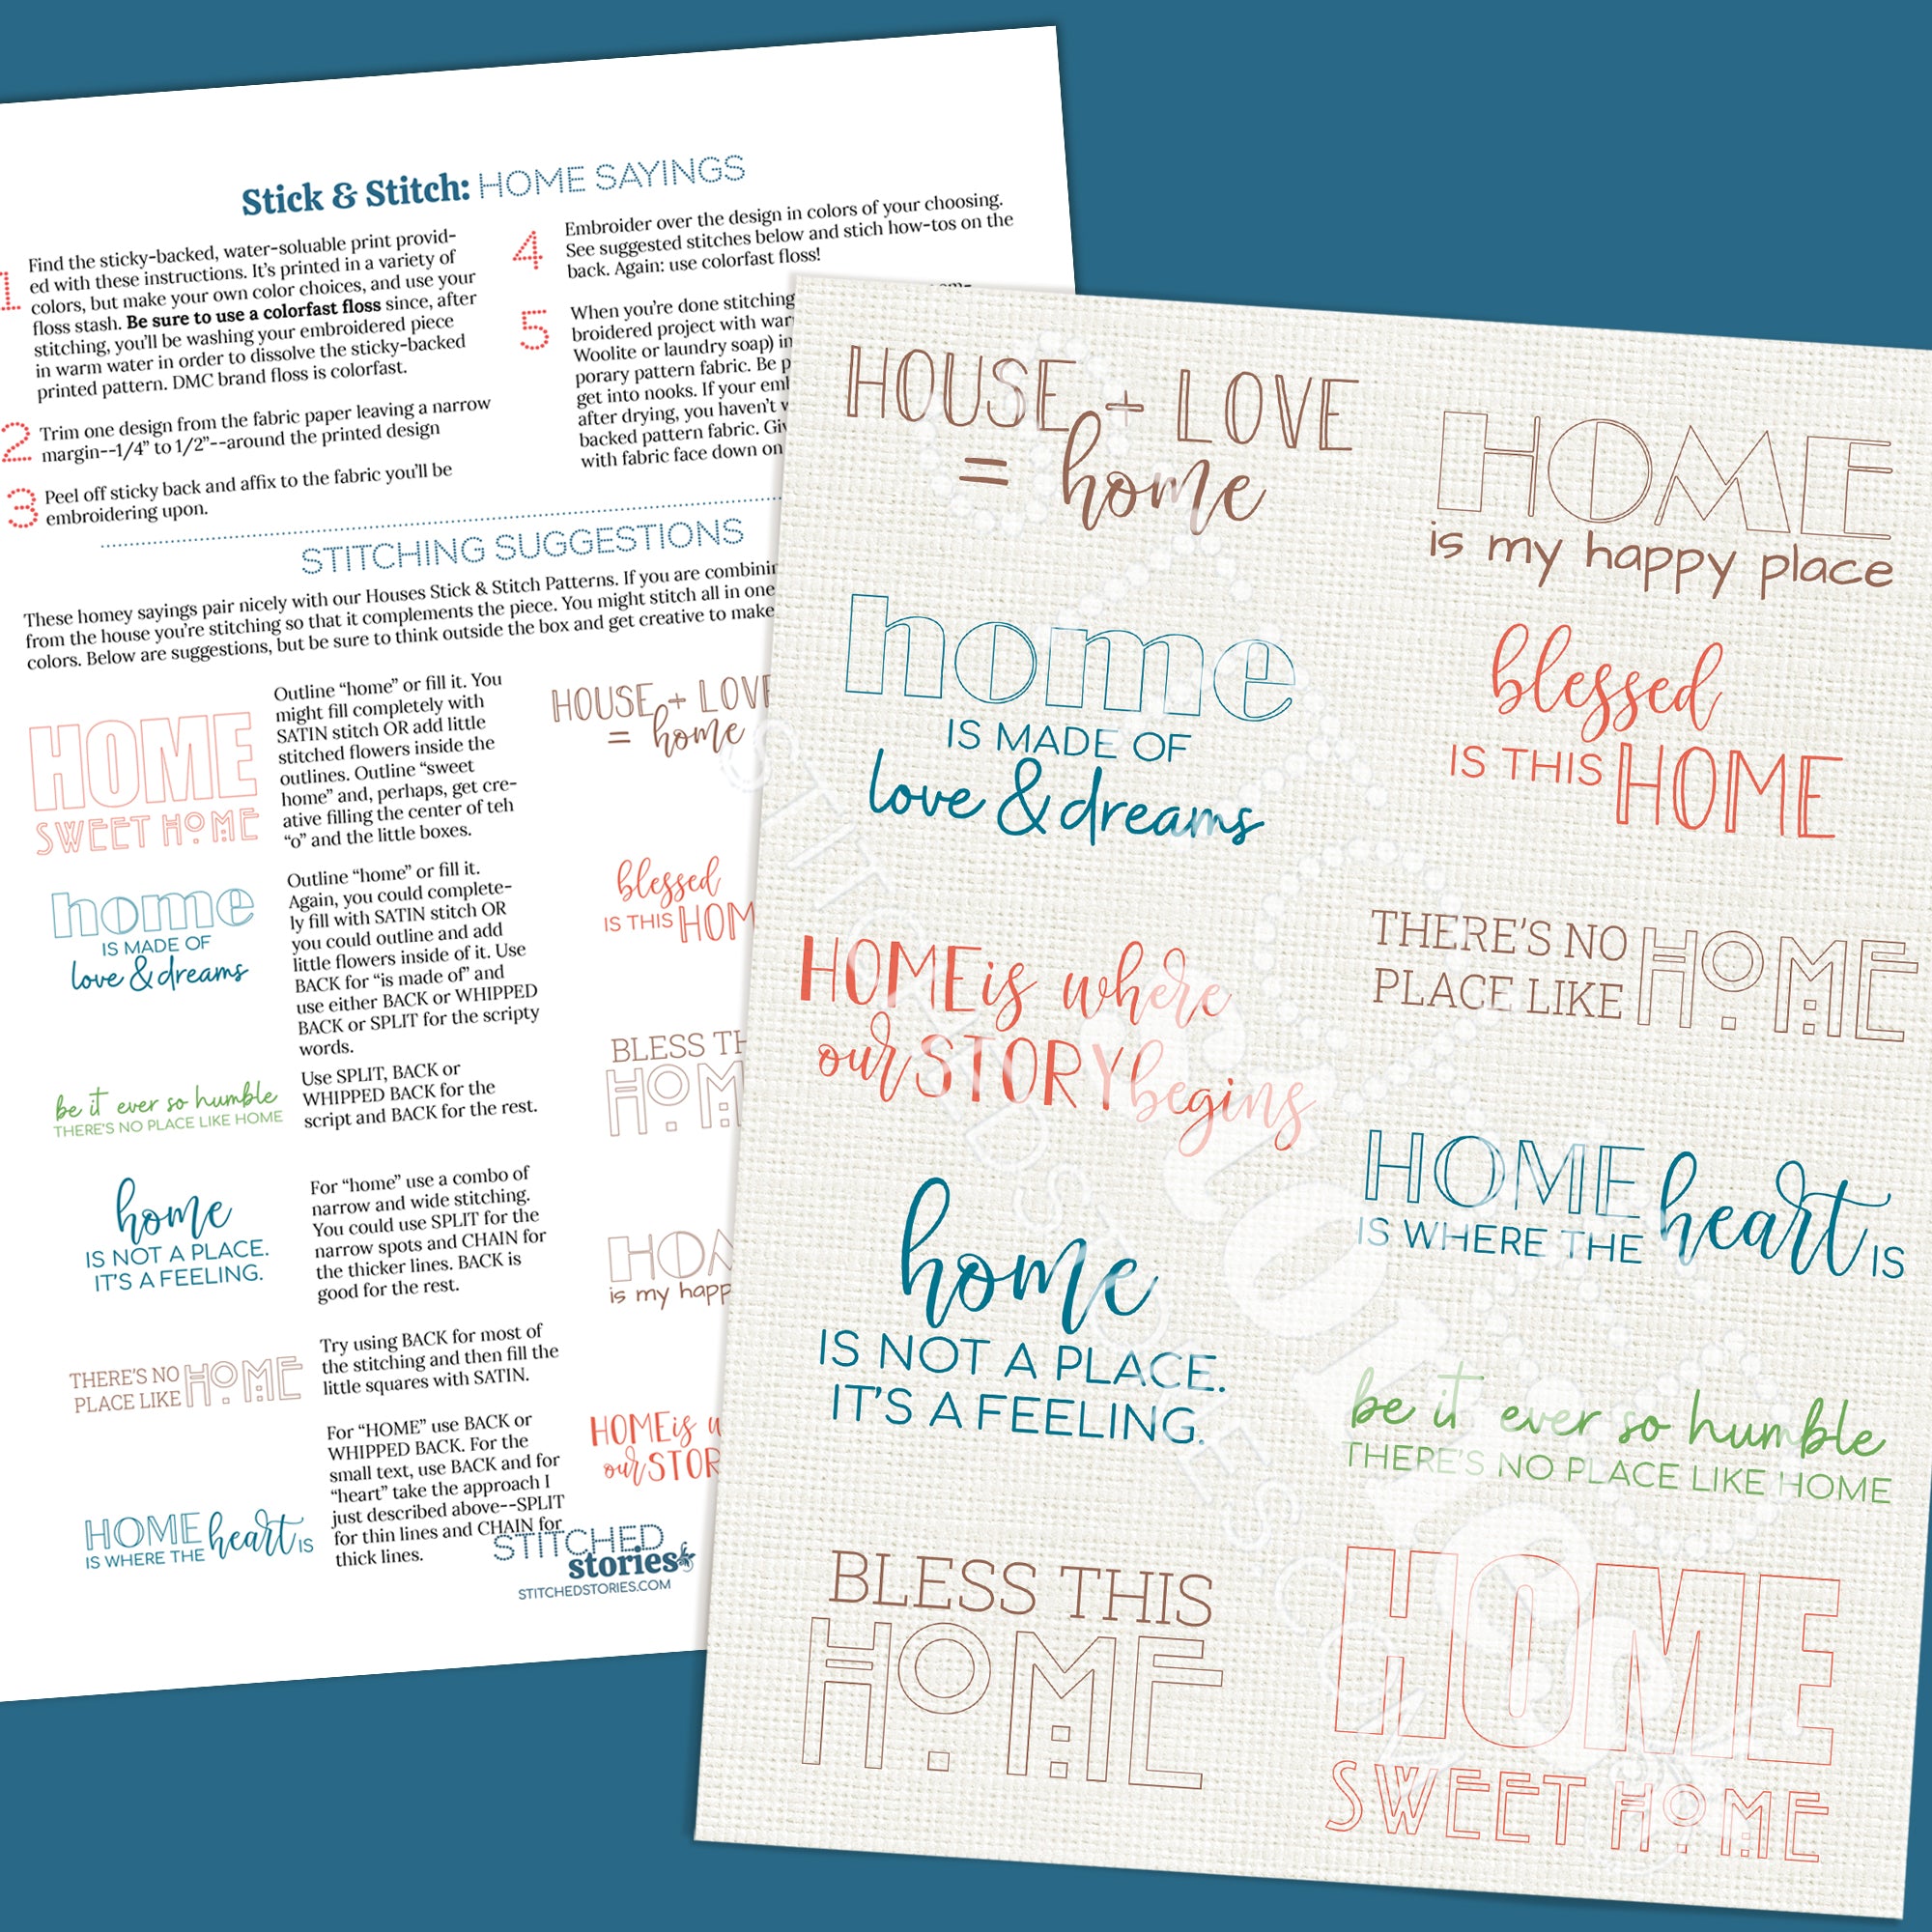 Stick & Stitch: HOME SAYINGS
1
Find the sticky-backed, water-soluable print provid-
ed with these instructions. It's printed in a variety of
colors, but make your own color choices, and use your
floss stash. Be sure to use a colorfast floss since, after
stitching, you'll be washing your embroidered piece
in warm water in order to dissolve the sticky-backed
printed pattern. DMC brand floss is colorfast.
2
Trim one design from the fabric paper leaving a narrow
margin--1/4" to 1/2"--around the printed design
3
Peel off sticky back and affix to the fabric you'll be
embroidering upon.
4
Embroider over the design in colors of your choosing.
See suggested stitches below and stich how-tos on the
back. Again: use colorfast floss!
5
When you're done stitching
broidered project with
Woolite or laundry soap) in
porary pattern fabric. Be
get into nooks. If your
after drying, you haven't
backed pattern fabric.
with fabric face down on
STITCHING SUGGESTIONS
These homey sayings pair nicely with our Houses Stick & Stitch Patterns. If you are
from the house you're stitching so that it complements the piece. You might stitch all in one
colors. Below are suggestions, but be sure to think outside the box and get creative to make
HOME
SWEET HOME
Outline "home" or fill it. You
might fill completely with
SATIN stitch OR add little
stitched flowers inside the
outlines. Outline "sweet
home" and, perhaps, get cre-
ative filling the center of teh
"o" and the little boxes.
home
IS MADE OF
love & dreams
Outline "home" or fill it.
Again, you could complete-
ly fill with SATIN stitch OR
you could outline and add
little flowers inside of it. Use
BACK for "is made of" and
use either BACK or WHIPPED
BACK or SPLIT for the scripty
words.
be it ever so humble
THERE'S NO PLACE LIKE HOME
Use SPLIT, BACK or
WHIPPED BACK for the
script and BACK for the rest.
home
IS NOT A PLACE.
IT'S A FEELING.
For "home" use a combo of
narrow and wide stitching.
You could use SPLIT for the
narrow spots and CHAIN for
the thicker lines. BACK is
good for the rest.
THERE'S NO
PLACE LIKE HOME
Try using BACK for most of
the stitching and then fill the
little squares with SATIN.
HOME heart IS
IS WHERE THE
For "HOME" use BACK or
WHIPPED BACK. For the
small text, use BACK and for
"heart" take the approach I
just described above--SPLIT
for thin lines and CHAIN for
thick lines.
HOUSE + LOV
= home
blessed
IS THIS HOM
BLESS TH
HOM
HOM
is my happ
HOME is w
our STOR
STITCHED
stories
STITCHEDSTORIES.COM
HOUSE + LOVE
= home
HOME
is my happy place
home
IS MADE OF
love & dreams
blessed
IS THIS HOME
HOME is where
our STORY begins
THERE'S NO
PLACE LIKE HOME
home
IS NOT A PLACE.
IT'S A FEELING.
HOME heart IS
IS WHERE THE
be it ever so humble
THERE'S NO PLACE LIKE HOME
BLESS THIS
HOME
HOME
SWEET HOME
STITCHED STORIES